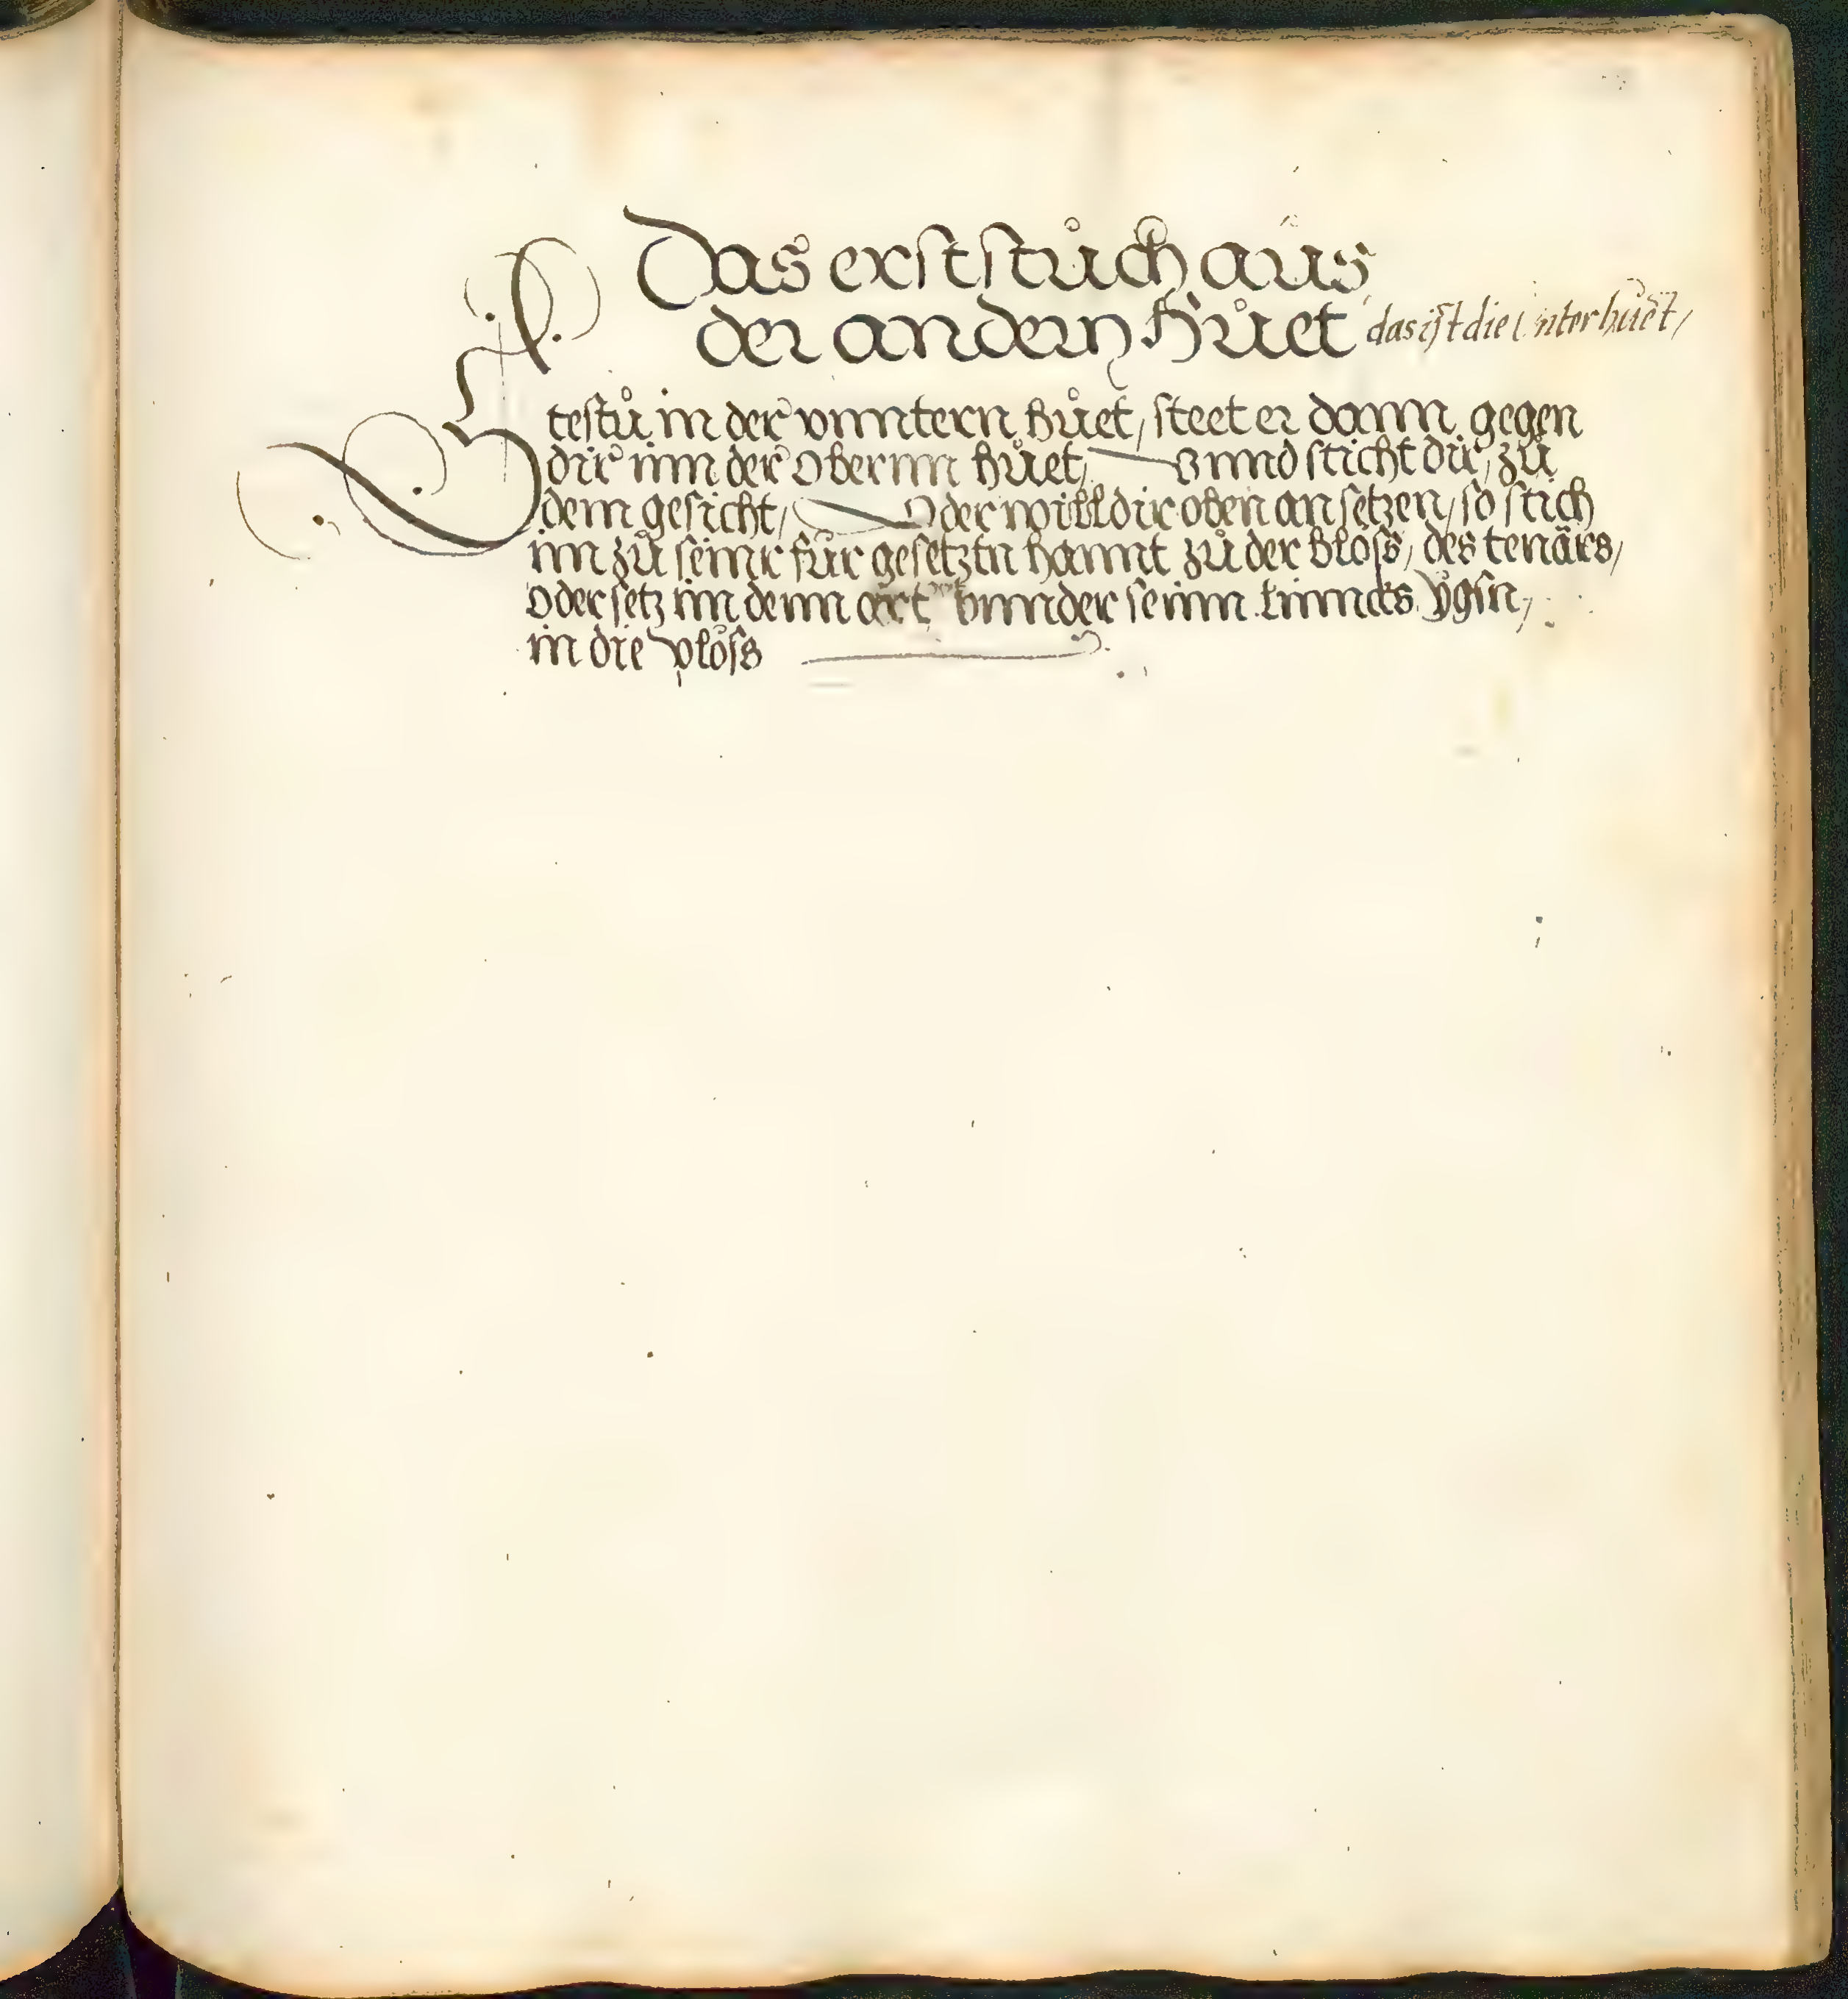 Das erst stůck aus
der andern Hůet das ist die Unterhuet,
Stestu in der vnntern hůet, steet er dann gegen
dir inn der Obernn hůet, Vnnd sticht dir, zů
dem gesicht, Oder will dir oben an setzen, so stich
im zů seinr fůr gesetztn hannt zů der bloss, des tenärs,
Oder setz im denn ort hinnder seinn linncks
in die plöss